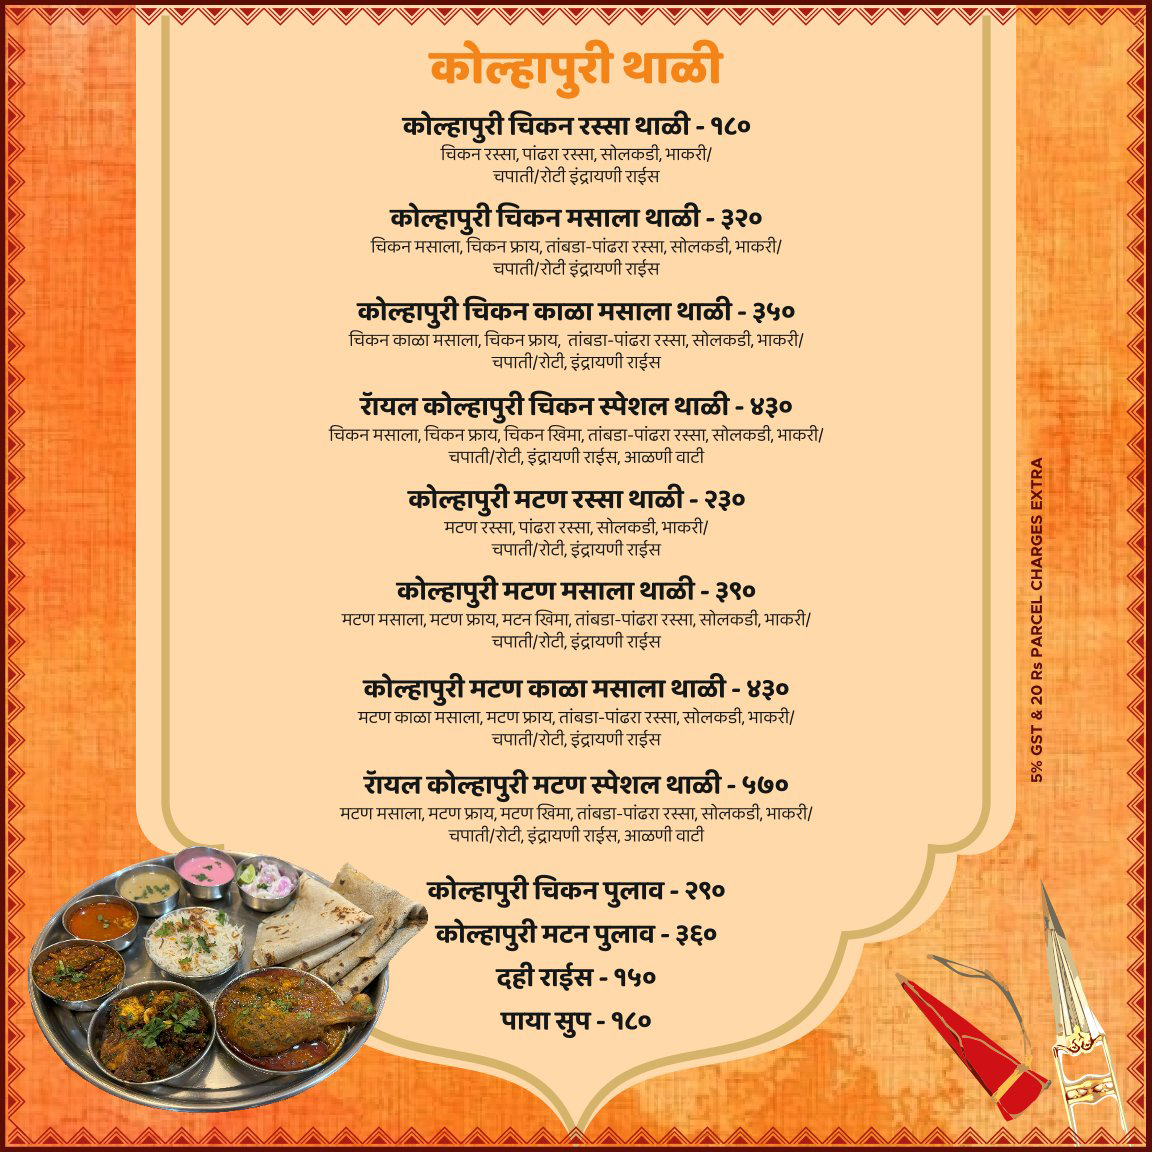 कोल्हापुरी थाळी
कोल्हापुरी चिकन रस्सा थाळी - १८०
चिकन रस्सा, पांढरा रस्सा, सोलकडी, भाकरी/
चपाती/रोटी इंद्रायणी राईस
कोल्हापुरी चिकन मसाला थाळी - ३२०
चिकन मसाला, चिकन फ्राय, तांबडा-पांढरा रस्सा, सोलकडी, भाकरी/
चपाती/रोटी इंद्रायणी राईस
कोल्हापुरी चिकन काळा मसाला थाळी - ३५०
चिकन काळा मसाला, चिकन फ्राय, तांबडा-पांढरा रस्सा, सोलकडी, भाकरी/
चपाती/रोटी, इंद्रायणी राईस
रॅायल कोल्हापुरी चिकन स्पेशल थाळी - ४३०
चिकन मसाला, चिकन फ्राय, चिकन खिमा, तांबडा-पांढरा रस्सा, सोलकडी, भाकरी/
चपाती/रोटी, इंद्रायणी राईस, आळणी वाटी
कोल्हापुरी मटण रस्सा थाळी - २३०
मटण रस्सा, पांढरा रस्सा, सोलकडी, भाकरी/
चपाती/रोटी, इंद्रायणी राईस
कोल्हापुरी मटण मसाला थाळी - ३९०
मटण मसाला, मटण फ्राय, मटन खिमा, तांबडा-पांढरा रस्सा, सोलकडी, भाकरी/
चपाती/रोटी, इंद्रायणी राईस
कोल्हापुरी मटण काळा मसाला थाळी - ४३०
मटण काळा मसाला, मटण फ्राय, तांबडा-पांढरा रस्सा, सोलकडी, भाकरी/
चपाती/रोटी, इंद्रायणी राईस
रॅायल कोल्हापुरी मटण स्पेशल थाळी - ५७०
मटण मसाला, मटण फ्राय, मटण खिमा, तांबडा-पांढरा रस्सा, सोलकडी, भाकरी/
चपाती/रोटी, इंद्रायणी राईस, आळणी वाटी
कोल्हापुरी चिकन पुलाव - २९०
कोल्हापुरी मटन पुलाव - ३६०
दही राईस - १५०
पाया सुप - १८०
5% GST & 20 Rs PARCEL CHARGES EXTRA